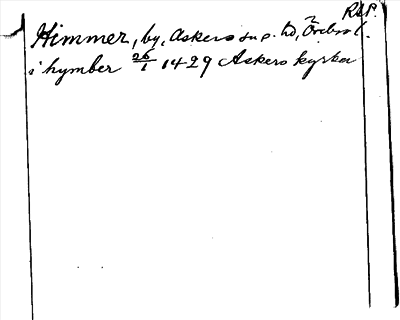 RAP.
Himmer, by, Askers sn o. hd, Örebro l.
i hymber 26/1 1429 Askers kyrka